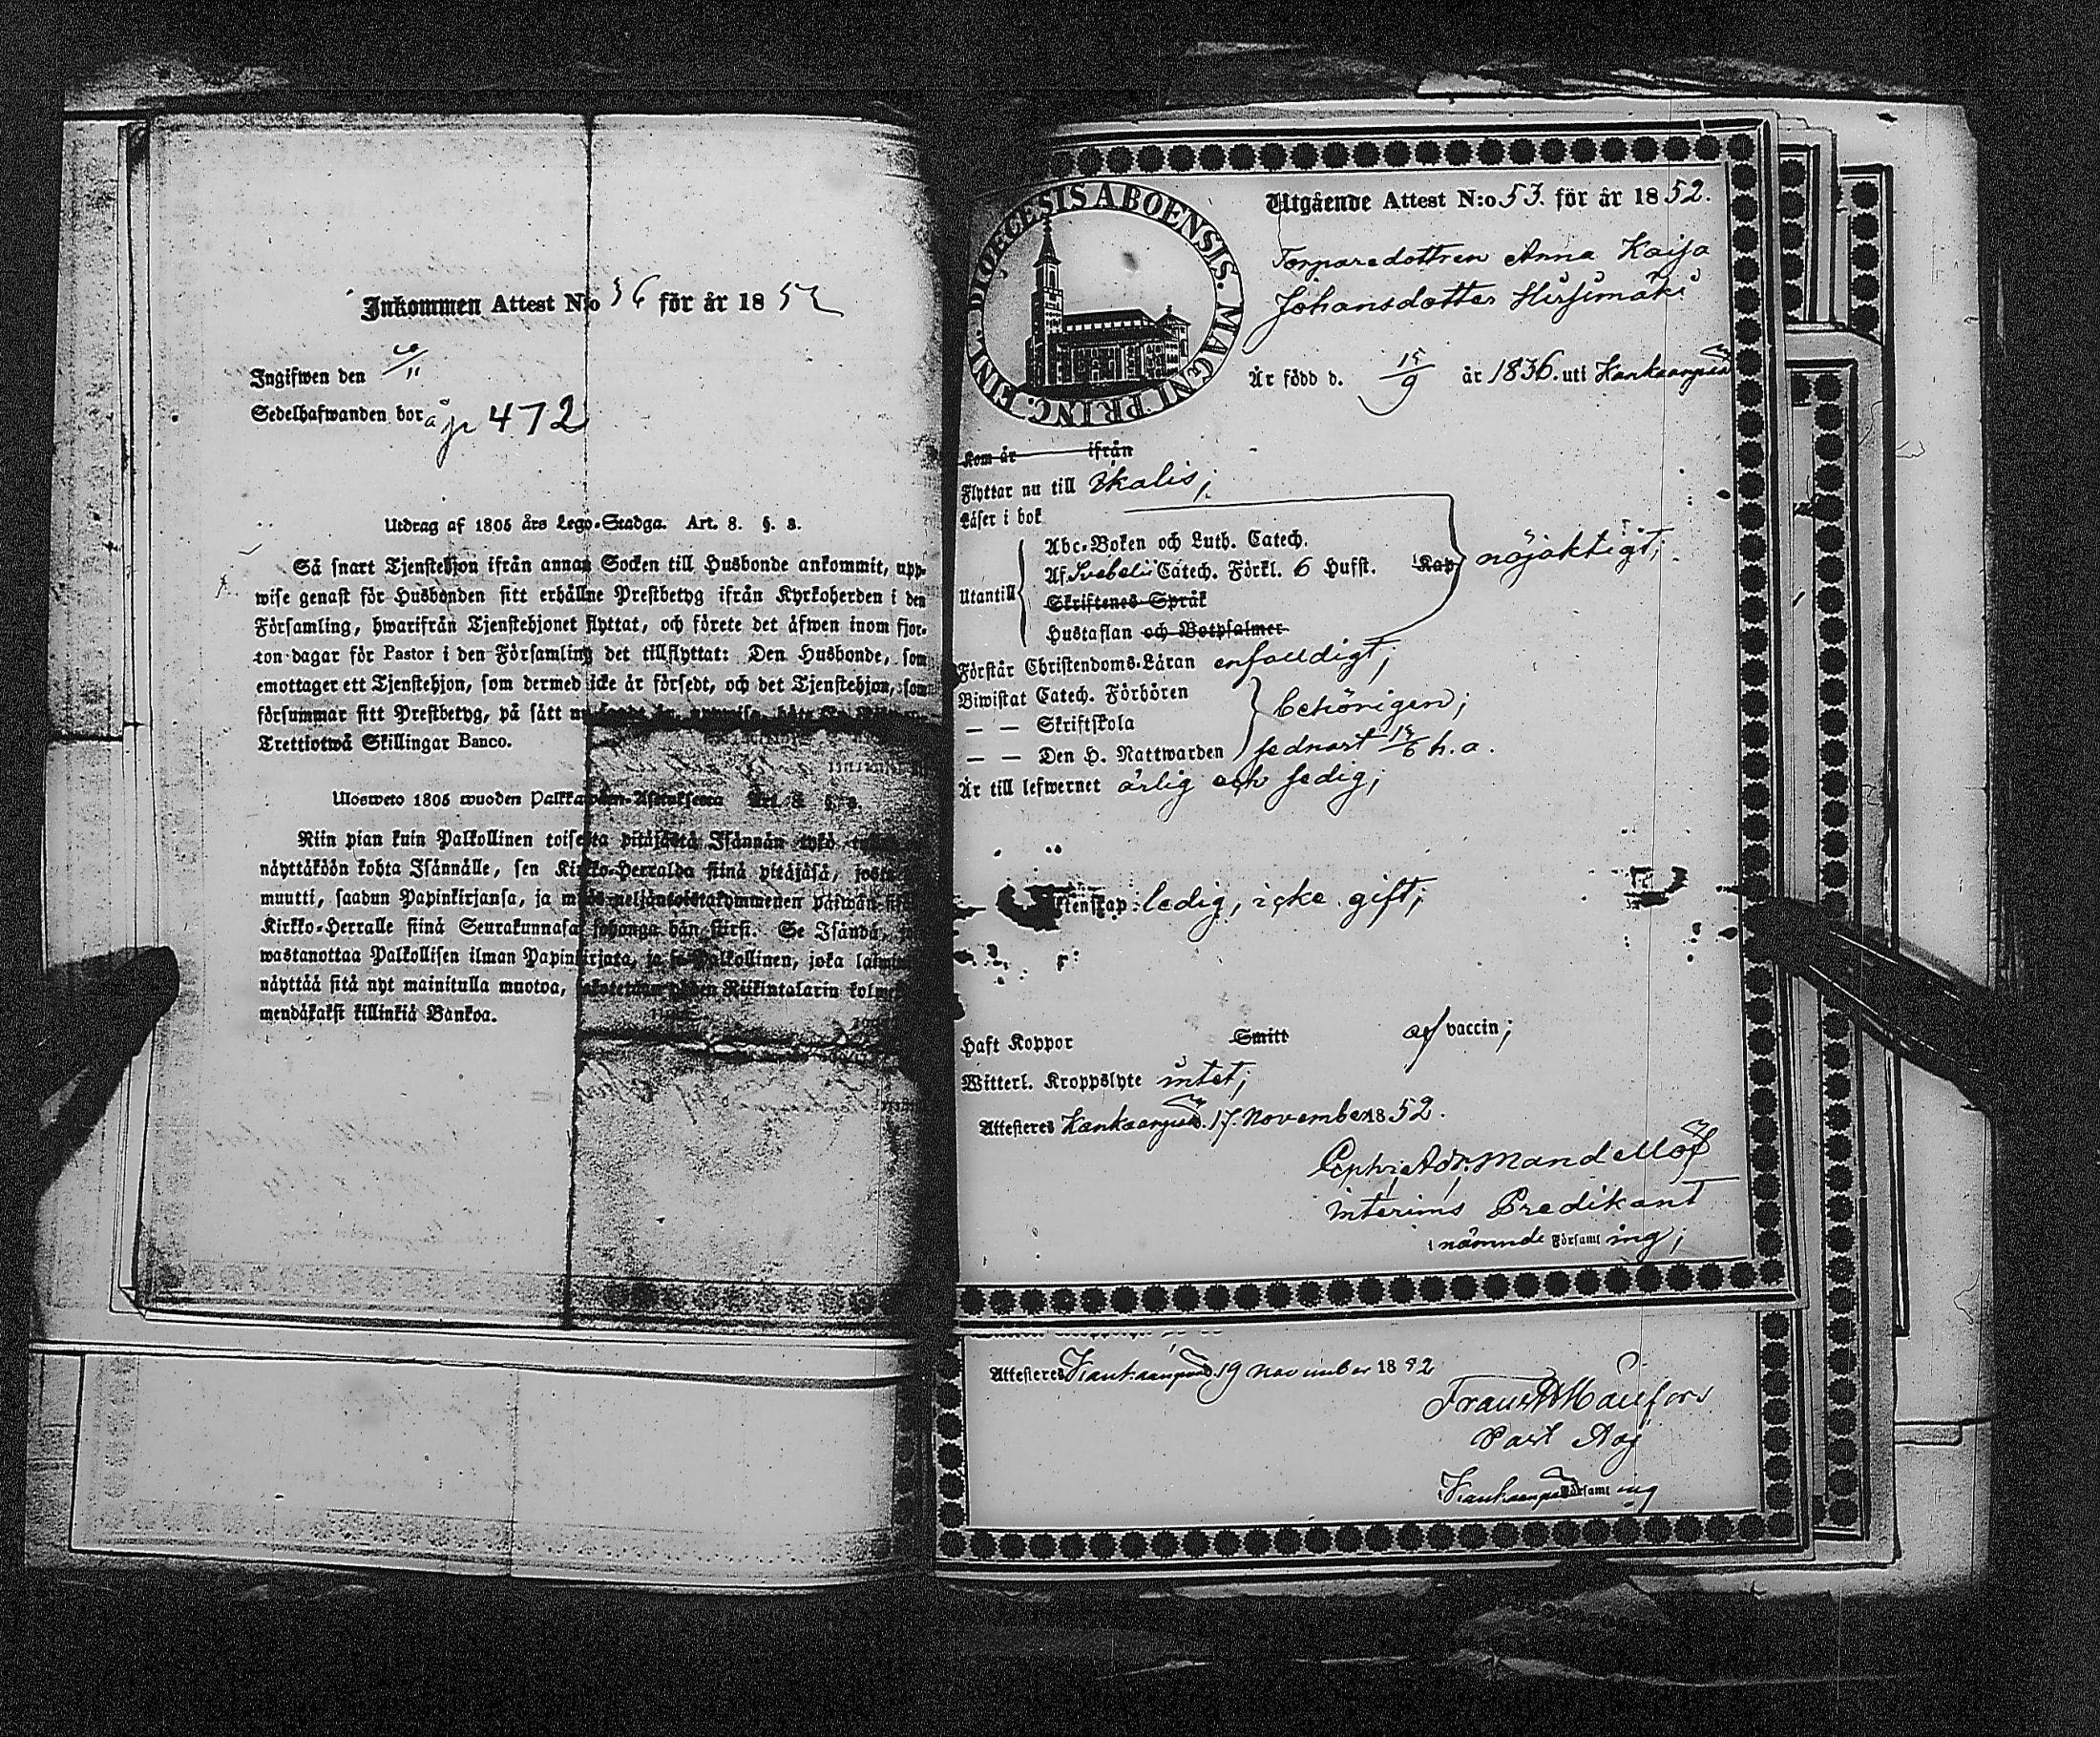 Inkommen Attest N:o 36 för år 1852
Ingifwen den /11
Sedelhafwanden bor å p 472
Utdrag af 1805 års Lego-Stadga. Art. 8. §. 8.
Så snart Tjenstehjon ifrån annan Socken till Husbonde ankommit, upp-
wise genast för Husbonden sitt erhållne Prestbetyg ifrån Kyrkoherden i den
Församling, hwarifrån Tjenstehjonet flyttat, och förete det äfwen inom fjor-
ton dagar för Pastor i den Församling det tillflyttat: Den Husbonde, som
emottager ett Tjenstehjon, som dermed icke är försedt, och det Tjenstehjon, som
försummar sitt Prestbetyg, på sätt nu
Trettiotwå Skillingar Banco.
Ulosweto 1805 wuoden Art. 8. §. 8.
Niin pian kuin Palkollinen toisesta pitäjästä Isännän tykö
näyttäköön kohta Isännälle, sen Kirkko-Herralda siinä pitäjäsä, josta
muutti, saadun Papinkirjansa, ja myös neljäntoistakymmenen päiwän
Kirkko-Herralle siinä Seurakunnasa johonga hän siirsi. Se Isändä,
wastanottaa Palkollisen ilman Papinkirjata, ja se Palkollinen, joka
näyttää sitä nyt mainitulla muotoa, Riikintalarin
mendäkaksi killinkiä Bankoa.
DIOECESIS ABOENSIS. MAGNI PRINC. FINL.
Utgående Attest N:o 53. för år 1852.
Torparedottren Anna Kaisa
Johansdotter Hirsimäki
Är född d. 15/9 år 1836. uti Kankaanpää
Kom år ifrån
Flyttar nu till Ikalis;
Läser i bok
Abc-Boken och Luth. Catech.
Utantill Af Svebelii Catech. Förkl. 6 Hufst. Kap nöjaktigt;
Skriftenes Språk
Hustaflan och Botpsalmer
Förstår Christendoms-Läran enfaldigt;
Biwistat Catech. Förhören behörigen;
— — Skriftskola
— — Den H. Nattwarden sednast 15/6 h. a.
Är till lefwernet ärlig och sedig;
ktenskap: ledig, icke gift;
Haft Koppor Smitt af vaccin;
Witterl. Kroppslyte intet;
Attesteras Kankaanpää. 17. November 1852.
Mandellöf
interims Predikant
i nämnde Församling;
Attesteras Kankaanpää 19 november 1852
Past Adj
Kankaanpää Församling